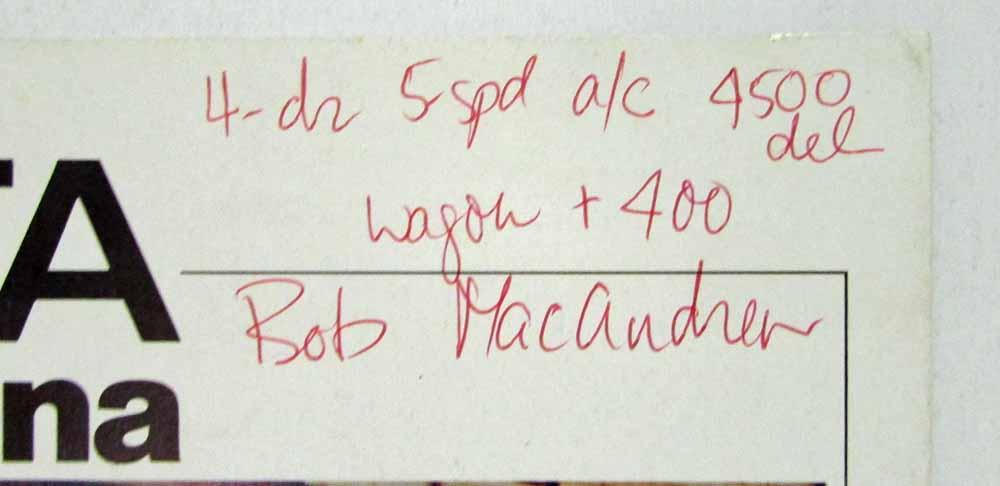 4-dr 5 spd a/c 4500
del
wagon + 400
TA
Bob MacAndrew
na